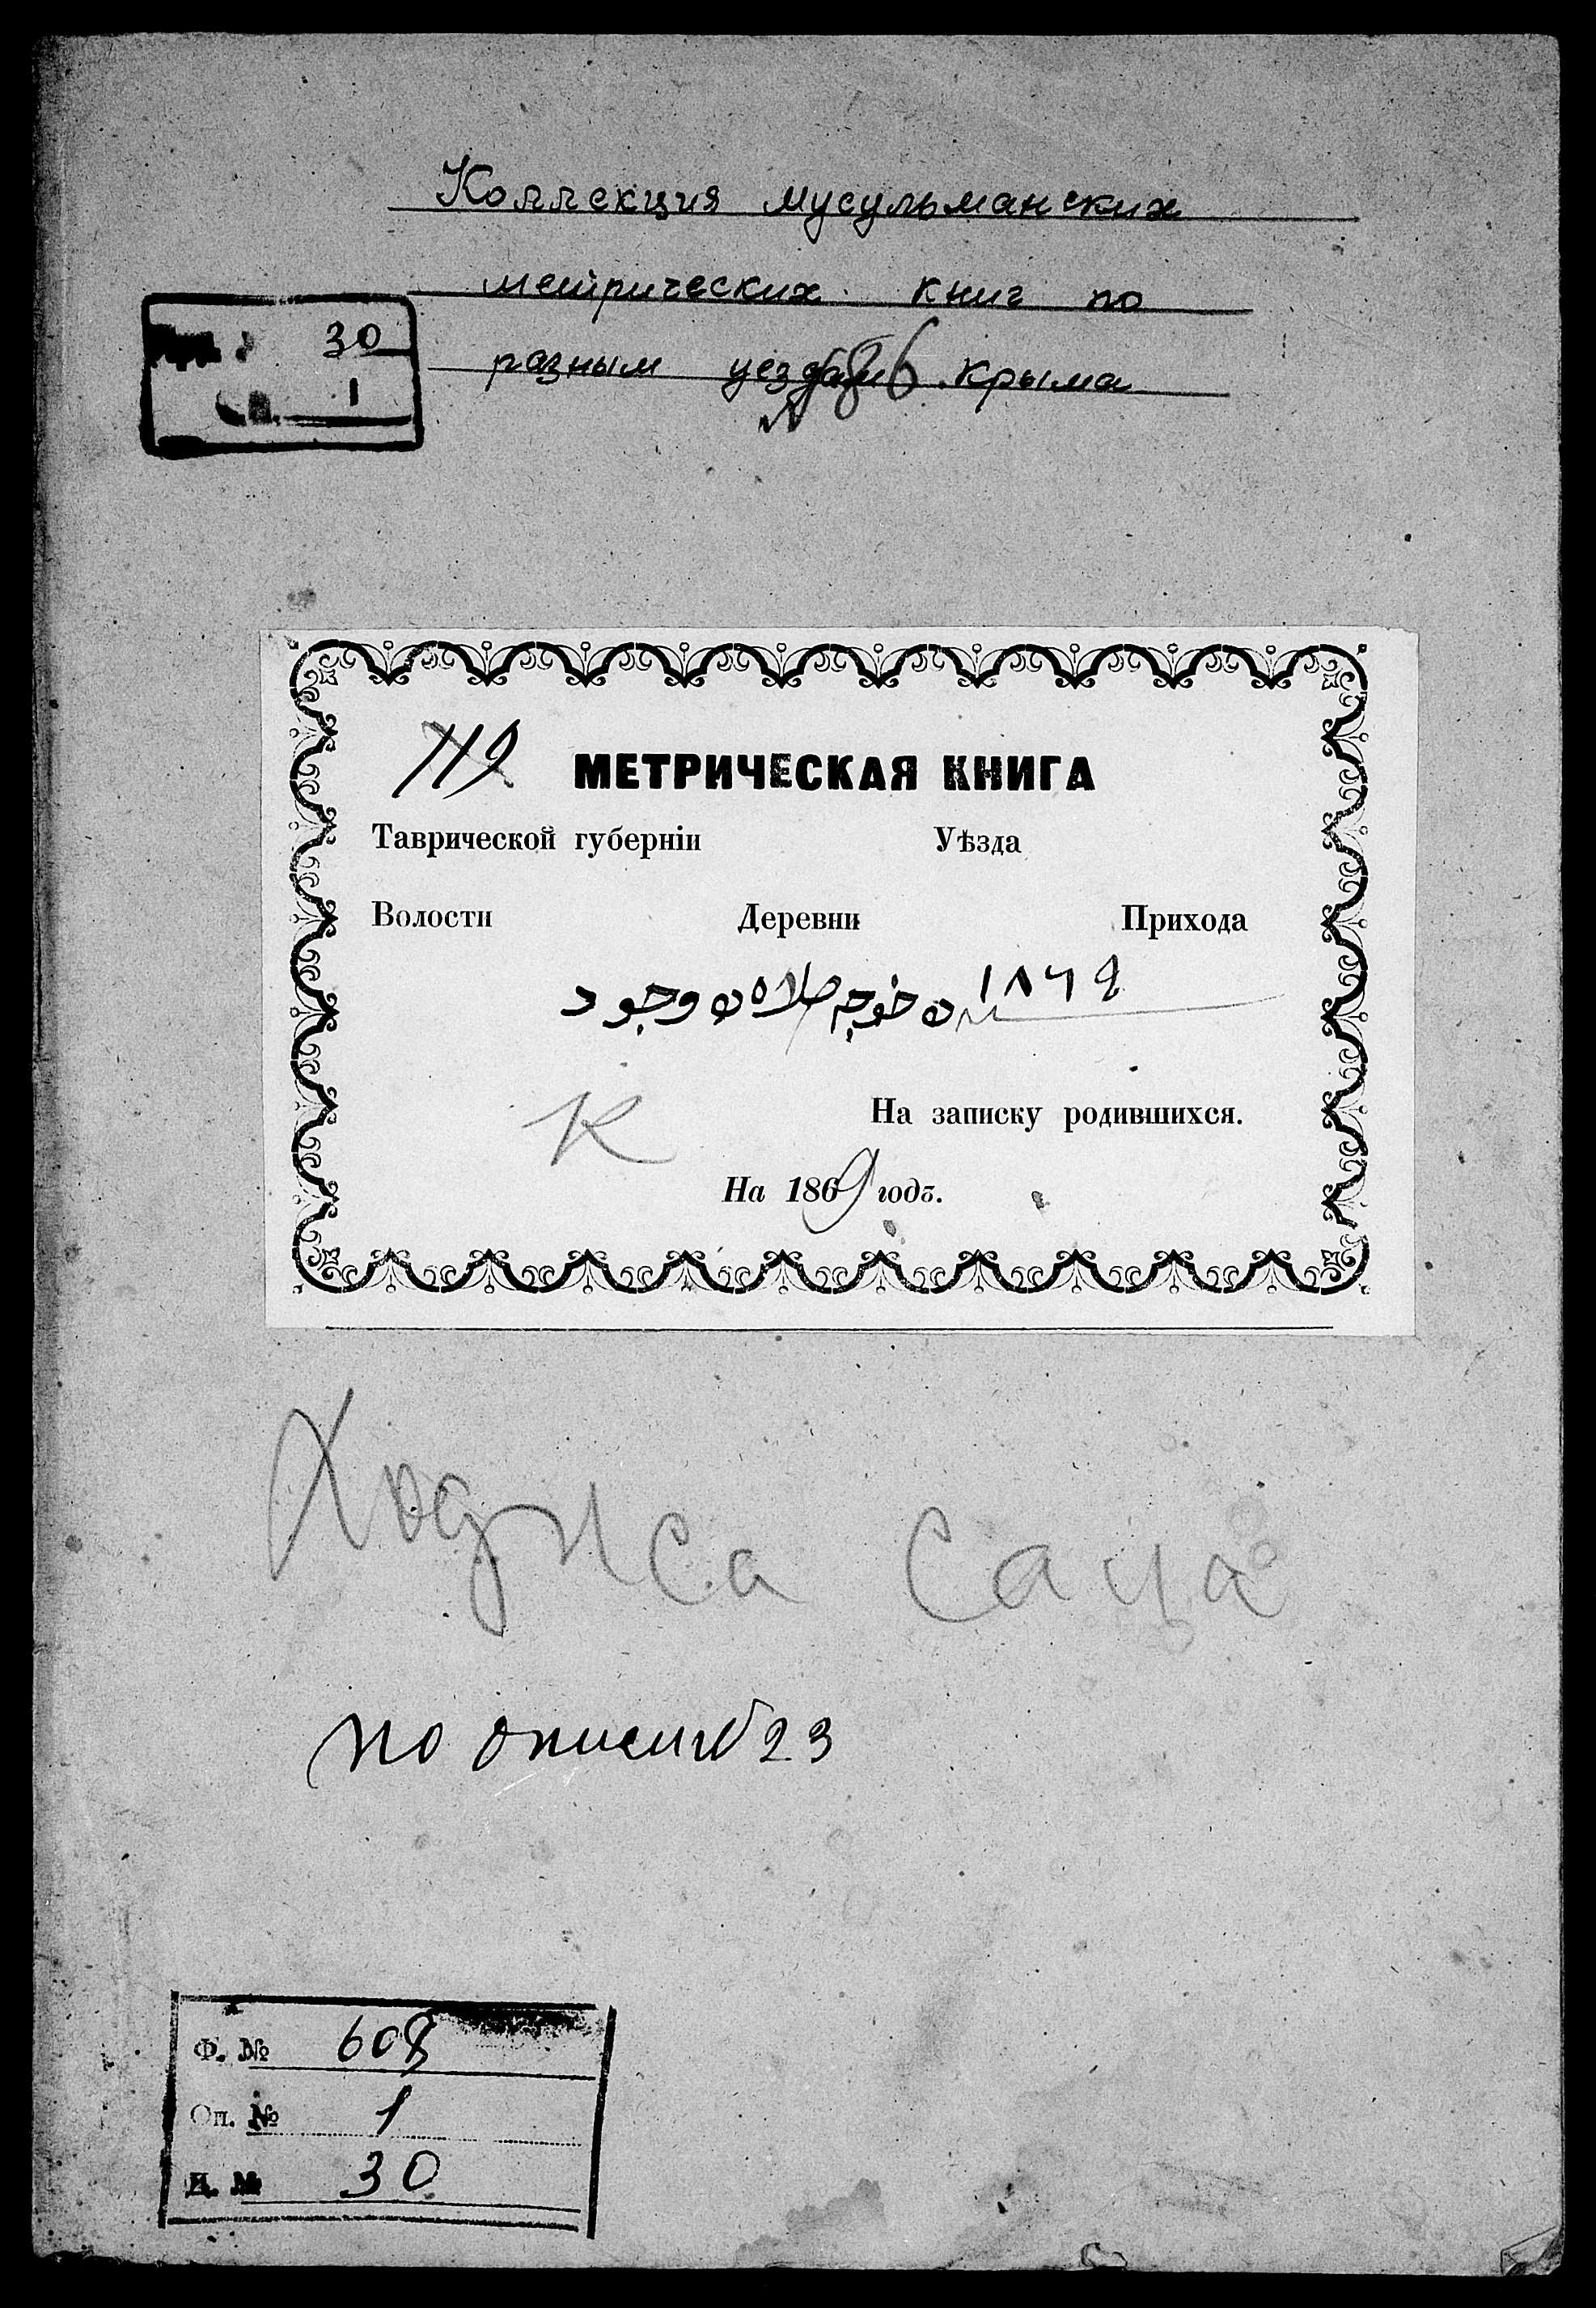 Коллекция мусульманских
метрических книг по
разным уездам Крыма
30
1
119
МЕТРИЧЕСКАЯ КНИГА
Таврической губерніи Уѣзда
Волости Деревни Прихода
١٨٦٩
К
На записку родившихся.
На 1869 годъ.
по описи № 23
Ф. № 608
Оп. № 1
Д. № 30